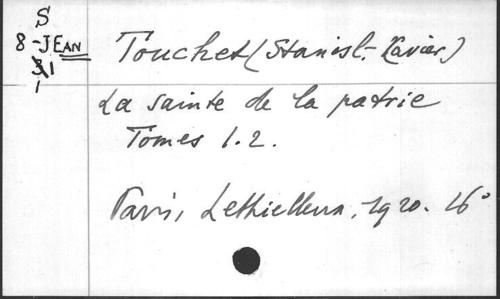 S
8-JEAN
31
1
Touchet (Stanisl.-Xavier)
La sainte de la patrie
Tomes 1.2.
Paris, Lethielleux, 1920. 16°